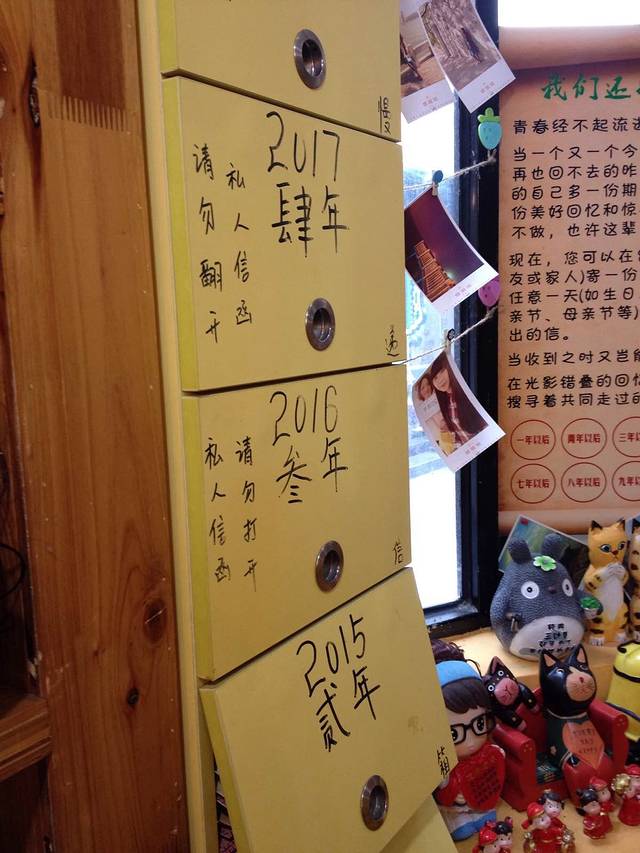 慢
2017
肆年
私人信函
请勿翻开
递
2016
叁年
请勿打开
私人信函
信
2015
贰年
箱
我们还
青春经不起流
当一个又一个今
再也回不去的昨
的自己多一份期
份美好回忆和惊
不做，也许这辈
现在，您可以在
友或家人)寄一份
任意一天(如生日
亲节、母亲节等)
出的信。
当收到之时又岂能
在光影错叠的回忆
搜寻着共同走过的
一年以后 两年以后 三年以
七年以后 八年以后 九年以